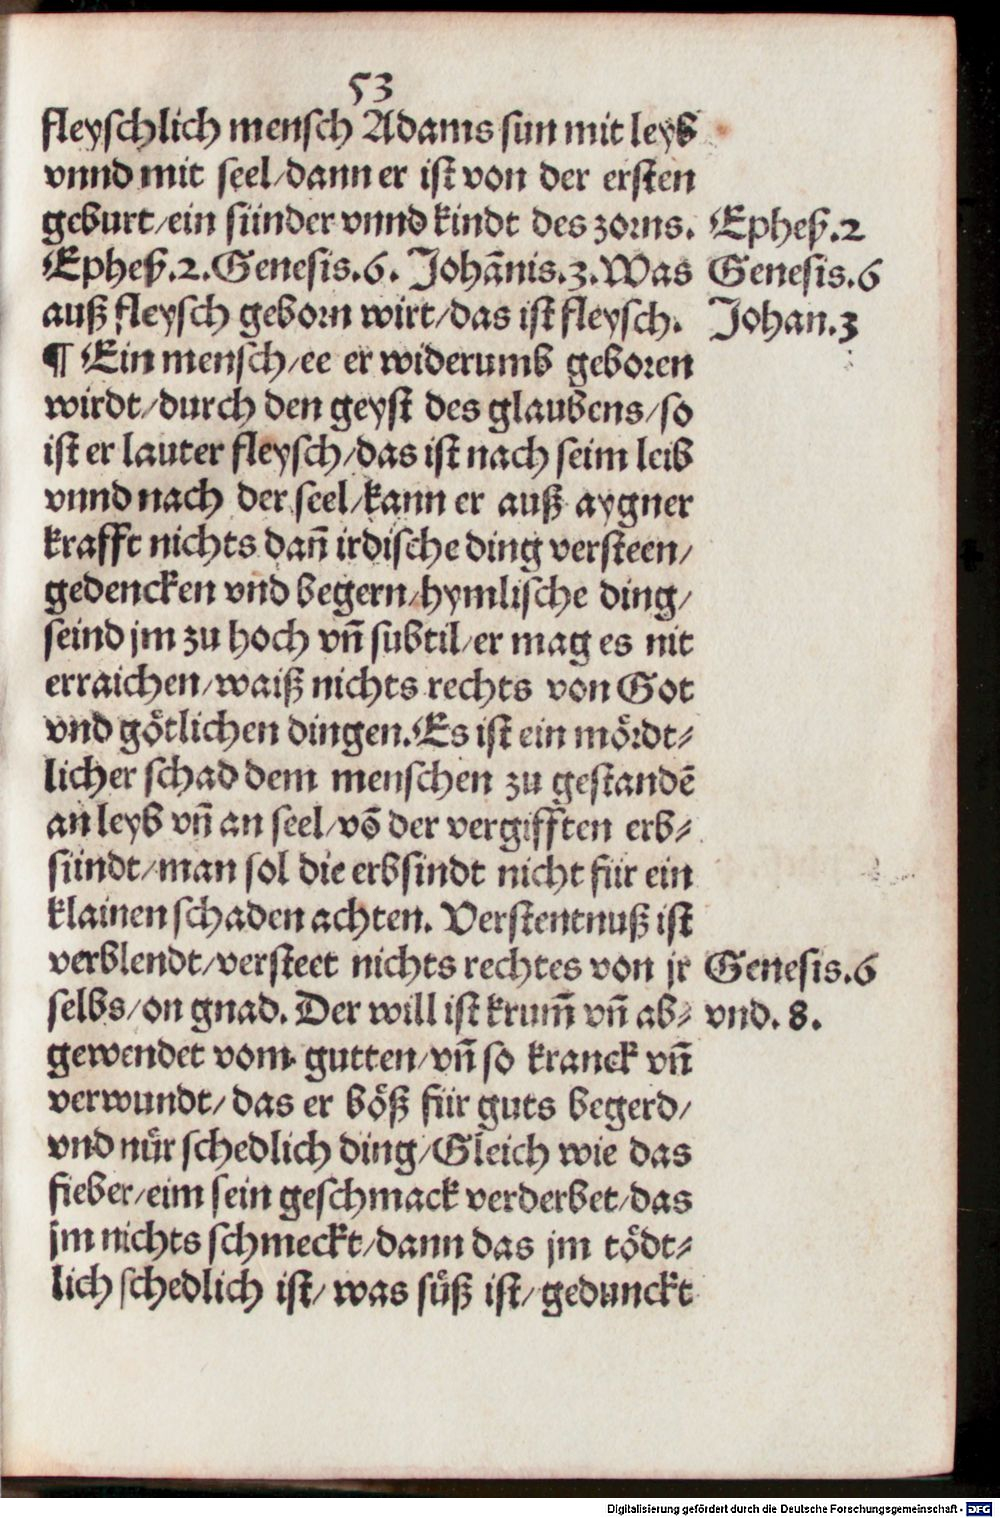 53
fleyschlich mensch Adams sun mit leyb
vnnd mit seel/dann er ist von der ersten
geburt/ein sünder vnnd kindt des zorns. Epheß.2
Epheß.2.Genesis.6. Johãnis.3.Was Genesis.6
auß fleysch geborn wirt/das ist fleysch. Johan.3
¶ Ein mensch/ee er widerumb geboren
wirdt/durch den geyst des glaubens/so
ist er lauter fleysch/das ist nach seim leib
vnnd nach der seel/kann er auß aygner
krafft nichts dañ irdische ding versteen/
gedencken vnd begern/hymlische ding/
seind jm zu hoch vñ subtil/er mag es nit
erraichen/waiß nichts rechts von Got
vnd götlichen dingen.Es ist ein mördt⸗
licher schad dem menschen zu gestandẽ
an leyb vñ an seel/võ der vergifften erb⸗
sündt/man sol die erbsindt nicht für ein
klainen schaden achten. Verstentnuß ist
verblendt/versteet nichts rechtes von jr Genesis.6
selbs/on gnad. Der will ist krum̃ vñ ab⸗ vnd. 8.
gewendet vom gutten/vñ so kranck vñ
verwundt/das er böß für guts begerd/
vnd nůr schedlich ding/Gleich wie das
fieber/eim sein geschmack verderbet/das
jm nichts schmeckt/dann das jm tödt⸗
lich schedlich ist/was süß ist/gedunckt
Digitalisierung gefördert durch die Deutsche Forschungsgemeinschaft - DFG